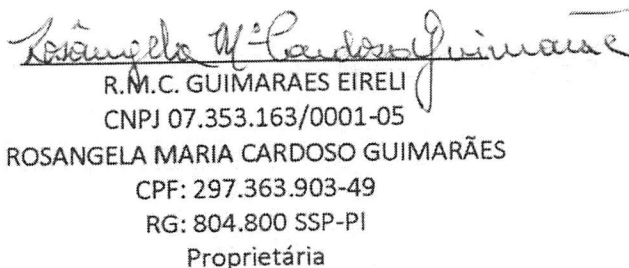 Rosângela Mª Cardoso Guimarãe
R.M.C. GUIMARAES EIRELI
CNPJ 07.353.163/0001-05
ROSANGELA MARIA CARDOSO GUIMARÃES
CPF: 297.363.903-49
RG: 804.800 SSP-PI
Proprietária